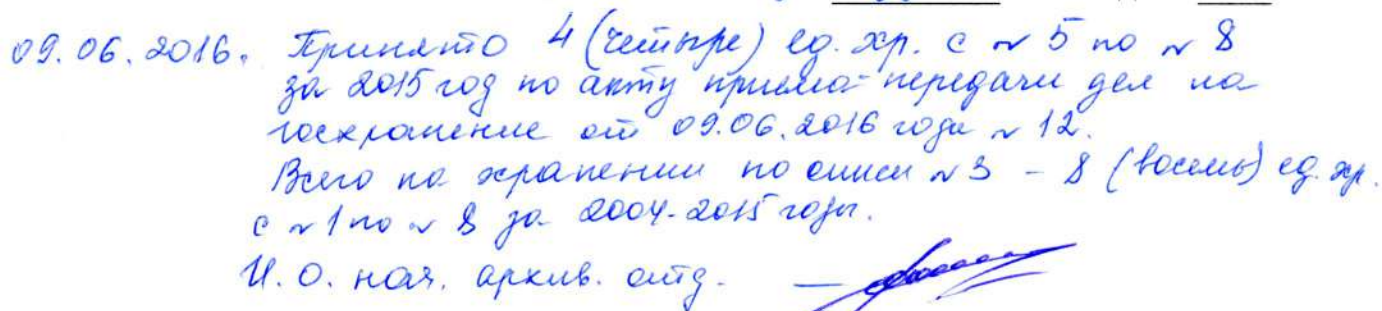 09.06.2016. Принято 4 (четыре) ед. хр. с № 5 по № 8
за 2015 год по акту приема-передачи дел на
госхранение от 09.06.2016 года № 12.
Всего на хранении по описи № 3 - 8 (восемь) ед. хр.
с № 1 по № 8 за 2004-2015 годы.
И.О. нач. архив. отд. —